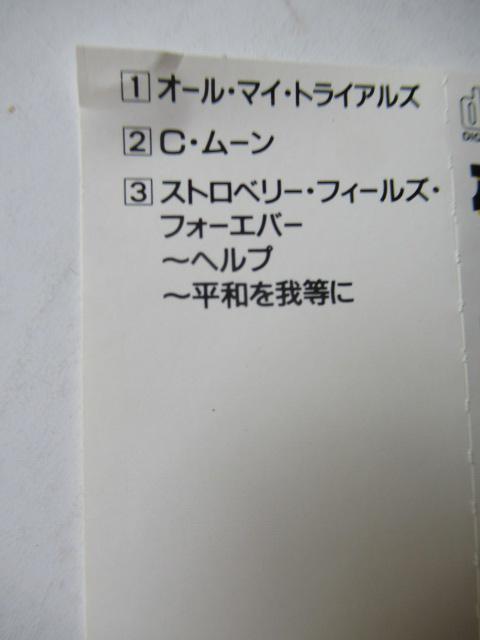 1 オール・マイ・トライアルズ
2 C・ムーン
3 ストロベリー・フィールズ・
フォーエバー
〜ヘルプ
〜平和を我等に